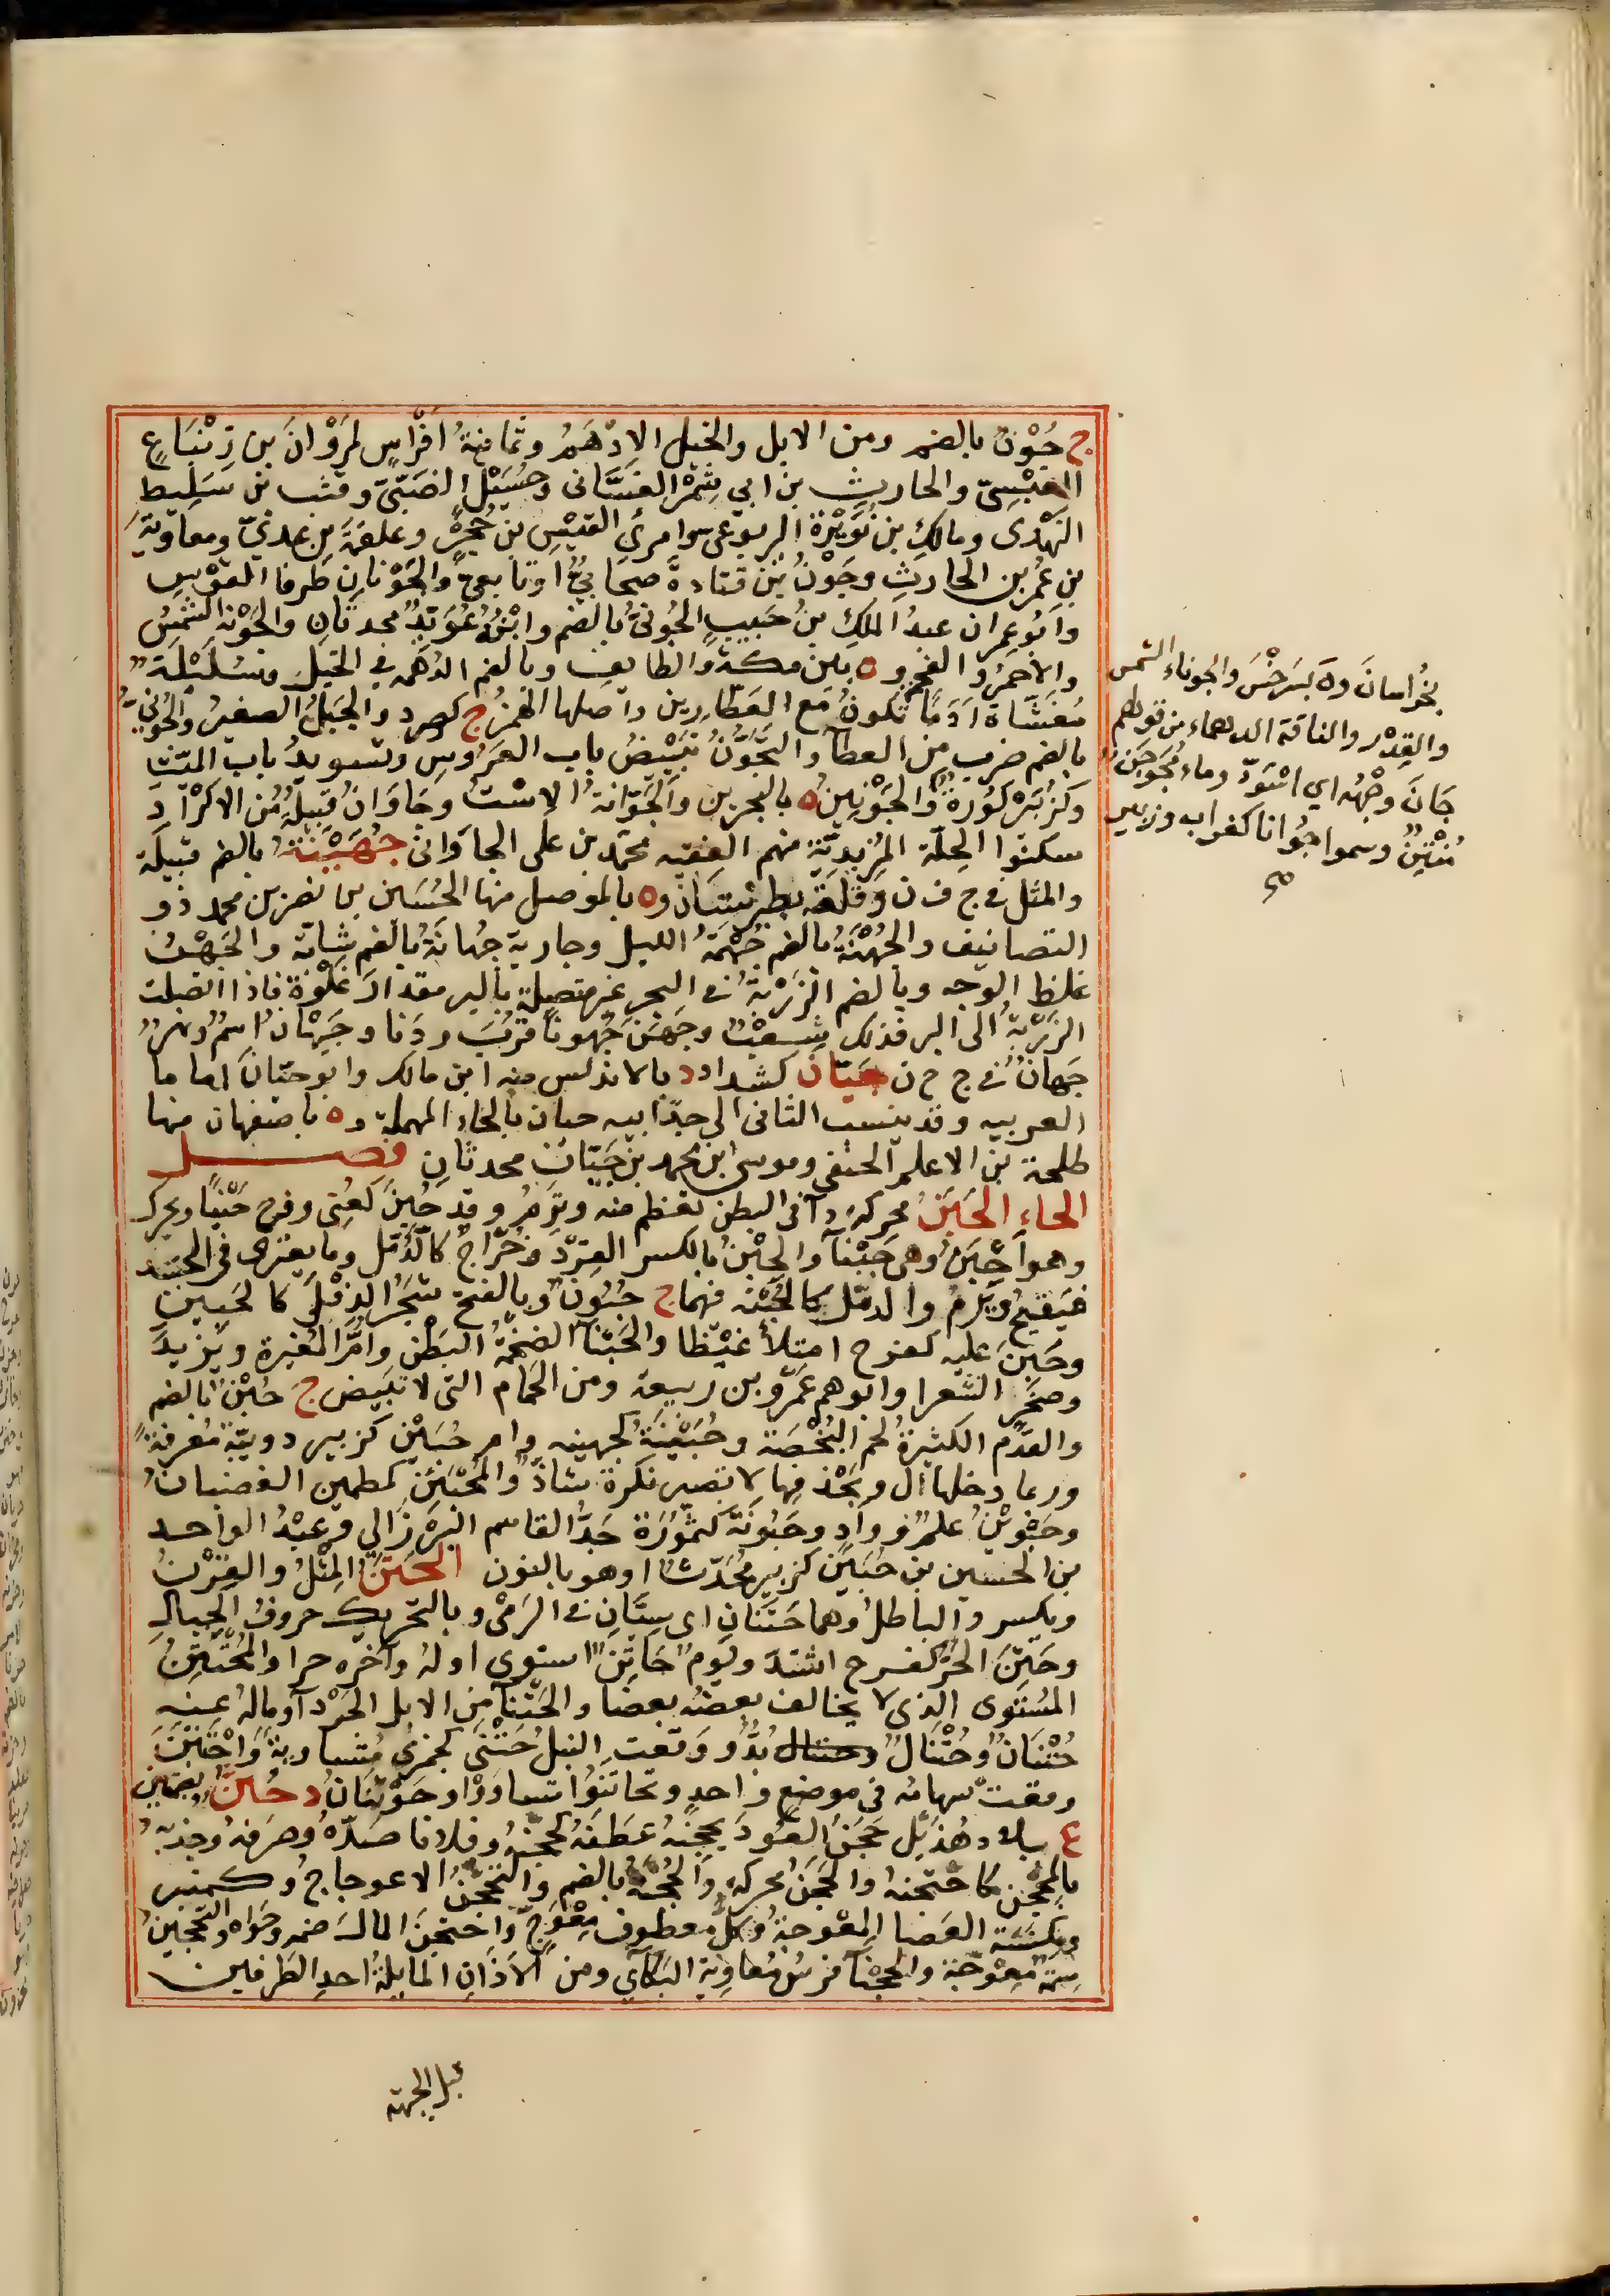 ج جُوْنٌ بالضم ومن الابل والخيل الادْهَمُ وثمانية افْراسٍ لمَرْوانَ بن زِنْبَاعٍ
العَبْسِيّ والحارِثِ بن ابي شِمْرٍ الغَسَّانى وحُسَيْلٍ الضَبّىّ وقتب بن سَلِيطٍ
النَهْدى ومالكِ بن نُوَيْرَة اليربوعى وامرئ القَيْسِ بن حُجْرٍ وعلقمَةَ بن عدىّ ومعاويةَ
بن عمرو بن الحارث وجَوْنُ بن قتادةَ صحابيٌّ او تابعىّ والجَوْنانِ طرفا القوْس
وابو عمران عبدُ الملكِ بنُ حَبيبٍ الجُونىُّ بالضم وابْنُهُ عُوَيْدٌ محدثانِ والجَوْنة الشمسُ
والاحمرُ والفحم وه بين مكةَ والطايف وبالضم الدُهْمَة في الخيل وسُلَيْلَةٌ
مُغَشّاة ادَمًا تكونُ مع العَطّارين واصلها الهمز ج كصرد والجَبَلُ الصغيرُ والجُونىُّ
بالضم ضرب من القطا والتَجَوّنُ تبييضُ باب العَرُوسِ وتسويدُ باب الميّت
وكزُبَيْر كُورةٌ والجَوْنَينُ ه بالبحرين والجَوّانَةُ الاسْتُ وجَاوَانُ قبيلةٌ من الاكْرَادِ
سكنوا الحِلّة المَزْيديّةَ منهم الفقيه محمد بن على الجاوانى جُهَيْنَةُ بالضم قبيلَة
والمثل فى ج ف ن وقلعَة بطبرستان وه بالموصل منها الحُسَين بن نصر بن محمد ذو
التصانيف والجُهْنَةُ بالضم جُهْمَةُ الليل وجارية جُهَانَةٌ بالضم شابّة والجَهْنُ
غلظ الوجه وبالضم الزَرْبة فى البحر غير متصلة بالبر مقدار غَلْوة فاذا اتصلت
الزَرْبةُ الى البر فذلك شِعْبٌ وجَهَنَ جُهونًا قرُبَ ودَنا وجَيْهانُ اسمٌ ونهرُ
جَهانُ فى ج ح ن جَيّان كشداد د بالاندلس منه ابن مالك وابو حيّان اماما
العربيه وقد ينسب الثانى الى جدّ ابيه حيان بالحاء المهملة وه باصفهان منها
طلحة بن الاعلم الحنفى وموسى ابن محمد بن جَيّان محدثانِ فصل
الحاء الحَبَنُ محركةً داء فى البطن يعظم منه ويَرِمُ وقد حُبِنَ كعُنِى وفرح حَبْنًا ويحرك
وهو احْبَنُ وهى حَبْناء والحِبْنُ بالكسر القِرْد وخُرّاجٌ كالدُمّل وما يعترى فى الجسد
فيَقيحُ ويَرِمُ والدمّل كالحِبْنَة فيهما ج حُبُونٌ وبالفتح شجَرُ الدِفْلَى كالحَبِين
وحَبِنَ عليه كفرح امتلأ غيْظا والحَبْناء الضخمَةُ البَطْنِ وامُّ المُغِيرة ويَزيدَ
وصَخْرٍ الشعرا وابوهم عَمْرُو بن ربيعة ومن الحَمَام التى لا تبيض ج حُبْنٌ بالضم
والقَدَم الكثيرةُ لحم البُخْصَة وحُبَيْنَةُ كجهينه وام حُبَيْنٍ كزبير دويبّة مَعْرفةً
وربما دخلها ال وبحذفها لا تصير نكرة شاذّ والمُحْبَئِنُّ كمطمئن الغضبانُ
وحَبَوْنَنُ علَمٌ ووادٍ وحَبُّونَة كسَمّورَة جدّ القاسم البَرْزالي وعبْدُ الواحد
بن الحسين بن حُبَيْن كزبير مُحَدّث او هو بالنون الحَتْنُ المِثْلُ والقِرْنُ
ويكسر والباطلُ وهما حَتْنانِ اى سِيّانِ فى الرَمْى وبالتحريك حروفُ الجِبالِ
وحَتِنَ الحرُّ كفرح اشتدّ ويومٌ حَاتِنٌ استوى اوله وآخره حرا والمُحْتَتِنُ
المُستَوى الذى لا يخالف بعضُه بعضًا والحَتْناء من الابل الحَرْداء وماله عنه
حُتْنَانٌ وحُتْنَالٌ بُدٌّ ووقعت النبلُ حَتَنَى كجمزى مُتساوية واحْتَتَنَ
وقعتْ سهامُه فى موضع واحدٍ وتحاتَنُوا تساوَوْا وحَوْتنَانُ د حُتُن بضمتين
ع ببلاد هُذَيْلٍ حَجَنَ العُودَ يحجِنُه عَطَفَهُ كحَجّنَه وفلانا صَدّهُ وصَرَفه وجذبه
بالمِحْجَنِ كاحتجنه والحَجَنُ محركة والحُجْنَة بالضم والتحَجُّنُ الاعوجاجُ وكمنبر
ومكنسة العَصا المعْوجة وكل معطوف مِعْوَجّ واحتجَنَ المالَ ضمه وحواه والتحْجِينُ
سِمَةٌ معوْجّة والحَجْناء فرسُ مُعاوِية البكّاءي ومن الآذانِ المايلةُ احدِ الطرفين
بخُراسانَ وة بسَرَخْسَ والجوناء الشمس
والقِدْر والناقة الدهماء من قولهم
جَانَ وجْهُه اى اسْوَدّ وماء مُجَوْجَنٌ
مُنْتِنٌ وسموا جُوانا كغراب وزبير
صح
قبل الجبهة